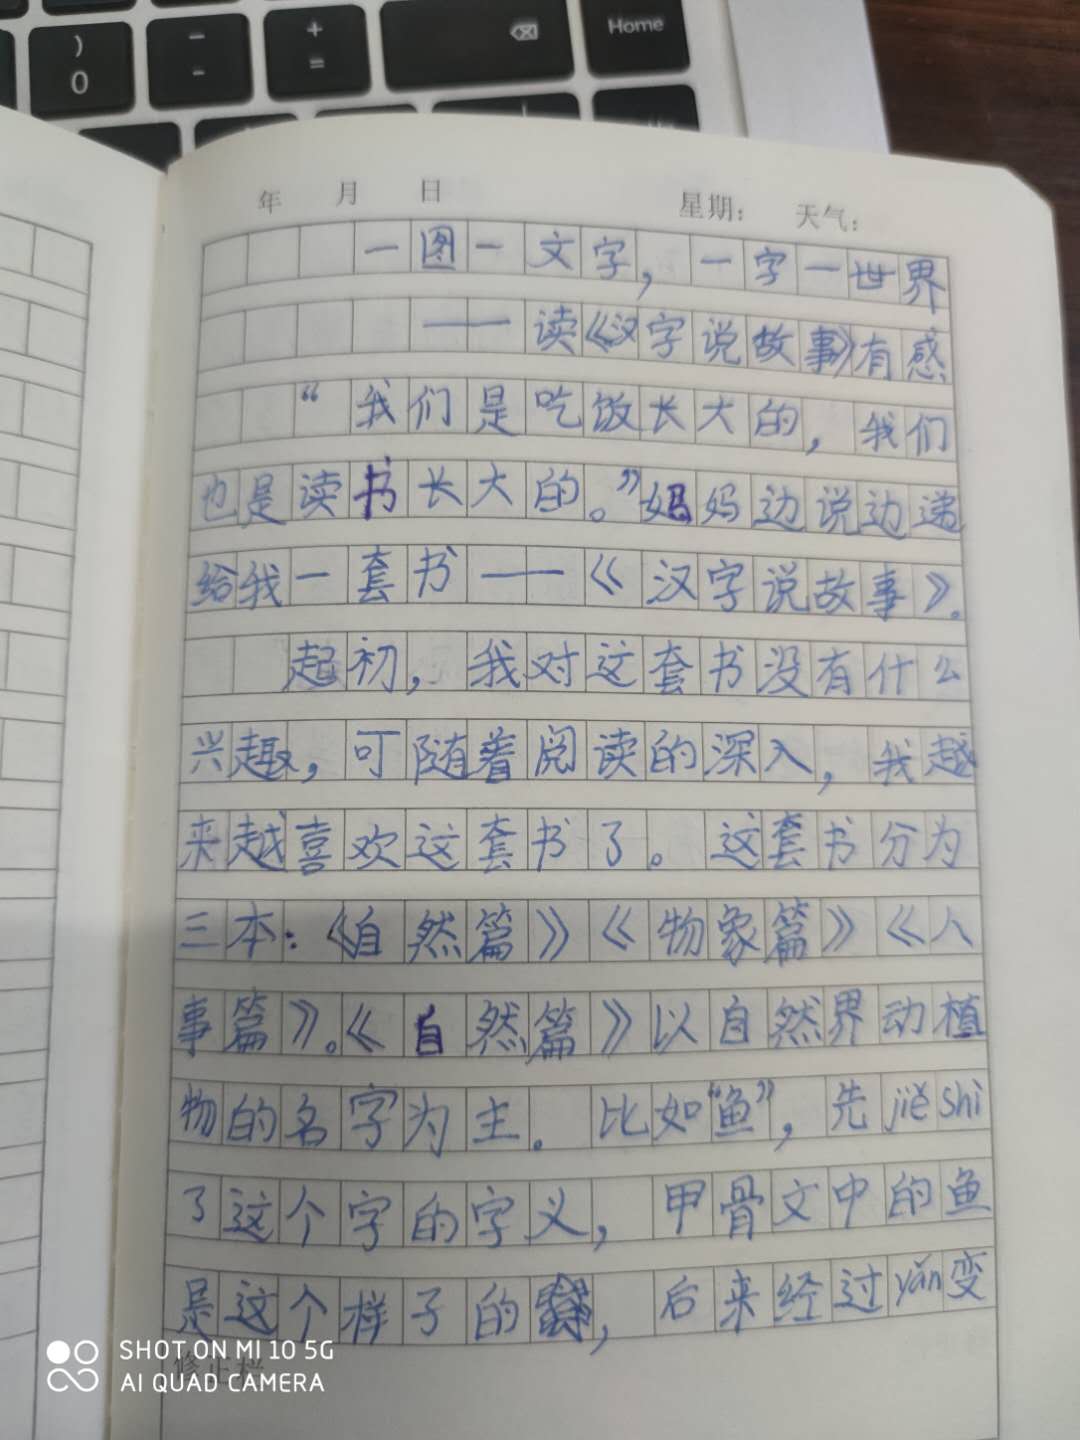 Home
)
0
-
-
+
=
年 月 日 星期: 天气:
一图一文字,一字一世界
——读《汉字说故事》有感
“我们是吃饭长大的,我们
也是读书长大的。”妈妈边说边递
给我一套书——《汉字说故事》。
起初,我对这套书没有什么
兴趣,可随着阅读的深入,我越
来越喜欢这套书了。这套书分为
三本:《自然篇》《物象篇》《人
事篇》。《自然篇》以自然界动植
物的名字为主。比如“鱼”,先jiěshì
了这个字的字义,甲骨文中的鱼
是这个样子的,后来经过yǎn变
修正栏
SHOT ON MI 10 5G
AI QUAD CAMERA